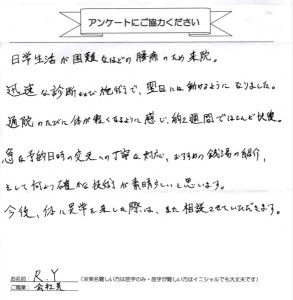 アンケートにご協力ください
日常生活が困難なほどの腰痛のため来院。
迅速な診断および施術で、翌日には動けるようになりました。
通院のたびに体が軽くなるように感じ、約2週間でほとんど快復。
急な予約日時の変更への丁寧な対応、おすすめの銭湯の紹介、
そして何より確かな技術が素晴らしいと思います。
今後、体に異常を来した際は、また相談させていただきます。
お名前: R.Y (※実名難しい方は苗字のみ・苗字が難しい方はイニシャルでも大丈夫です)
ご職業: 会社員